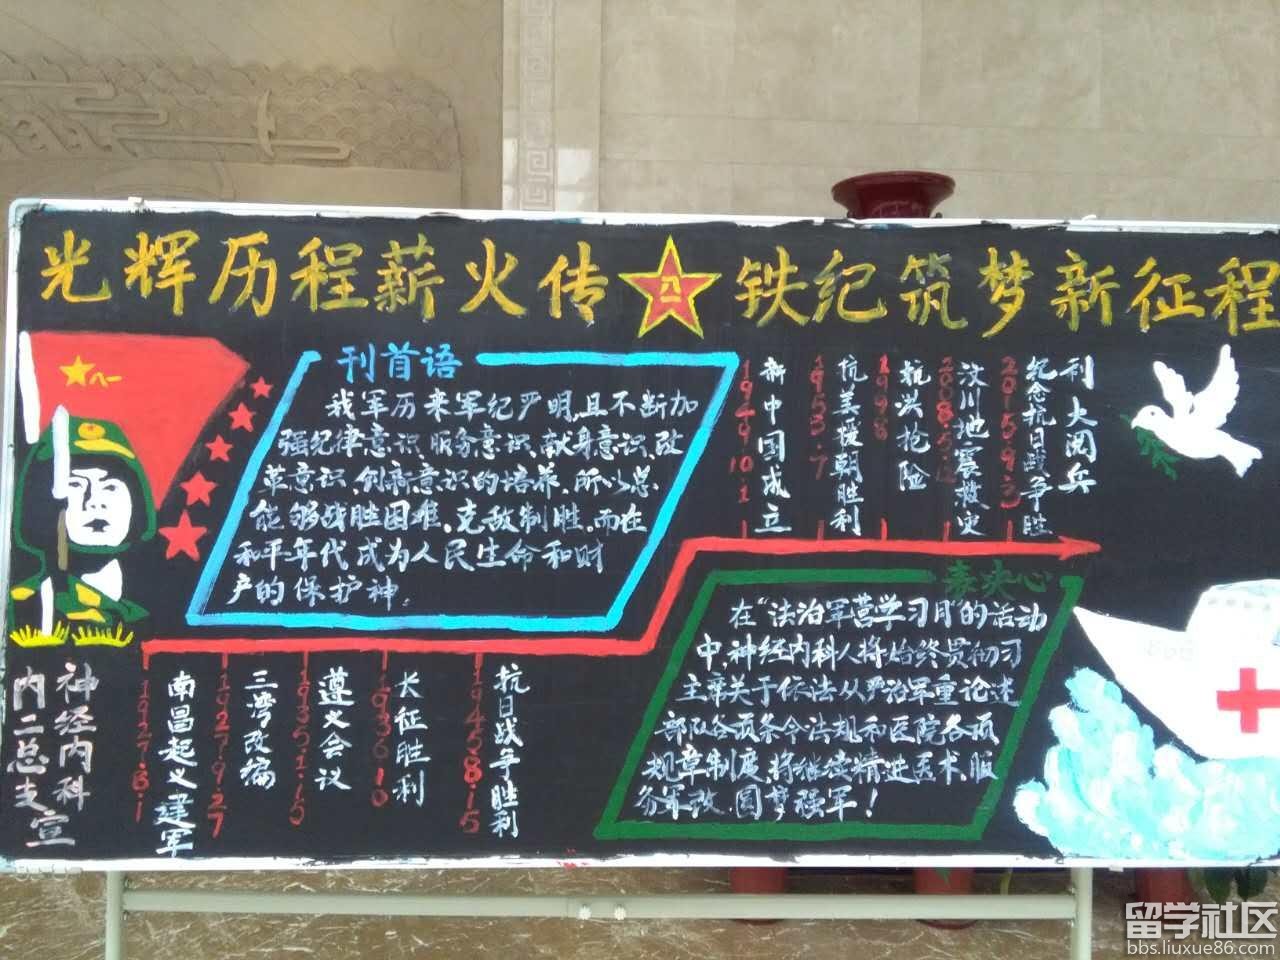 光辉历程薪火传
八一
铁纪筑梦新征程
八一
刊首语
我军历来军纪严明,且不断加
强纪律意识、服务意识、献身意识、改
革意识、创新意识的培养,所以总
能够战胜困难,克敌制胜,而在
和平年代成为人民生命和财
产的保护神。
1949.10.1
新中国成立
1953.7
抗美援朝胜利
1998
抗洪抢险
2008.5.12
汶川地震救灾
2015.9.3
纪念抗日战争胜
利大阅兵
1927.8.1
南昌起义建军
1927.9.27
三湾改编
1935.1.15
遵义会议
1936.10
长征胜利
1945.8.15
抗日战争胜利
表决心
在“法治军营学习月”的活动
中,神经内科人将始终贯彻习
主席关于依法从严治军重论述
部队各项条令法规和医院各项
规章制度,将继续精进医术,服
务军改,圆梦强军!
神经内科
内二总支宣
留学社区
bbs.liuxue86.com